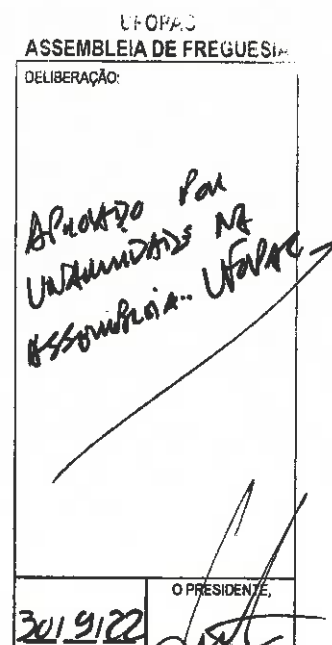 UFOPAC
ASSEMBLEIA DE FREGUESIA
DELIBERAÇÃO:
APROVADO POR
UNANIMIDADE NA
ASSEMBLEIA.. UFOPAC
O PRESIDENTE,
30/9/22